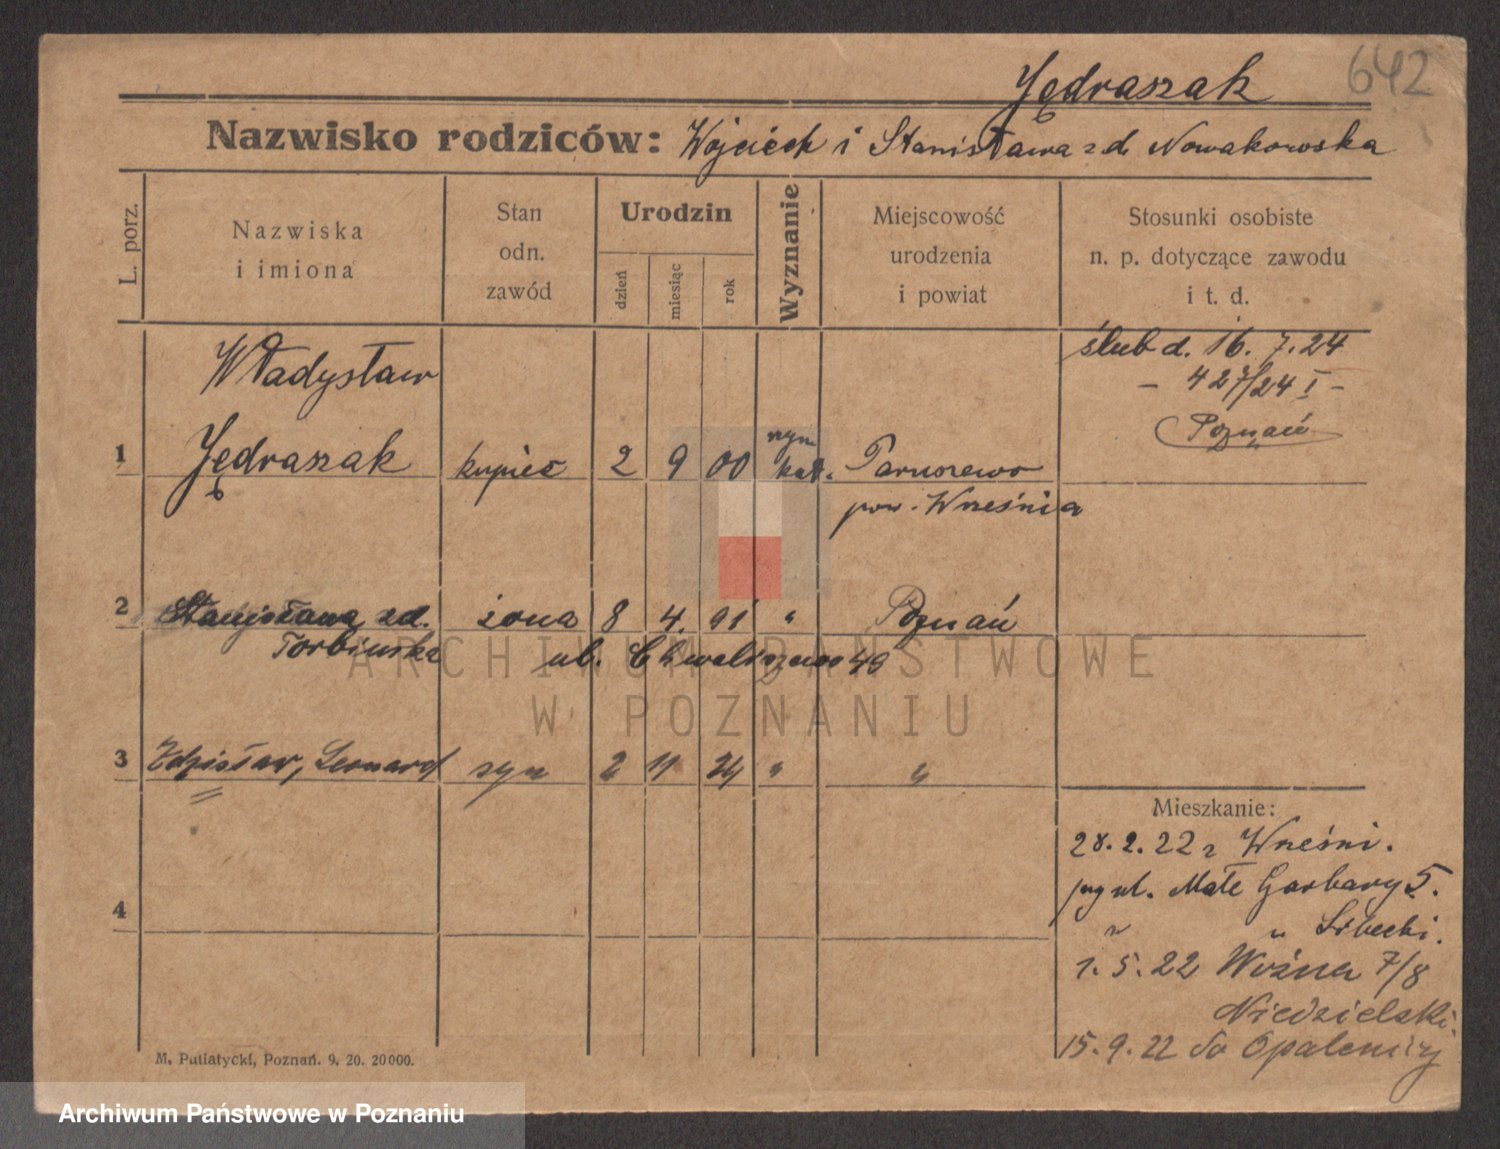 642
Jędraszak
Nazwisko rodziców: Wojciech i Stanisława zd Nowakowska
L. porz.
Nazwiska
i imiona
Stan
odn.
zawód
Urodzin
dzień
miesiąc
rok
Wyznanie
Miejscowość
urodzenia
i powiat
Stosunki osobiste
n. p. dotyczące zawodu
i t. d.
ślub d. 16. 7. 24
- 427/24 I -
Poznań
Władysław
1 Jędraszak kupiec 2 9 00 rzym kat. Paruszewo
pow. Września
2 Stanisława zd. żona 8 4. 01 " Poznań
Torbińska ul. Chwaliszewo 49
3 Zdzisław, Leonard syn 2 11 24 " "
4
Mieszkanie:
28. 2. 22 z Wrześni.
ul. Małe Garbary 5.
" "
1. 5. 22 Woźna 7/8
Niedzielski.
15. 9. 22 do Opalenicy
M. Putiatycki, Poznań. 9. 20. 20000.
ARCHIWUM PAŃSTWOWE
W POZNANIU
Archiwum Państwowe w Poznaniu